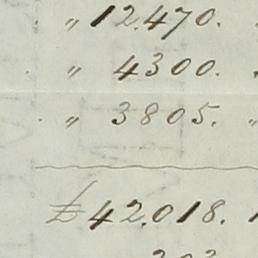 „ 12.470.
„ 4300.
„ 3805. „
£ 42.018.